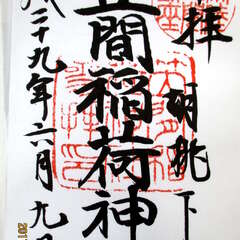 拝 胡桃下
笠間稲荷神
成二十九年六月九日